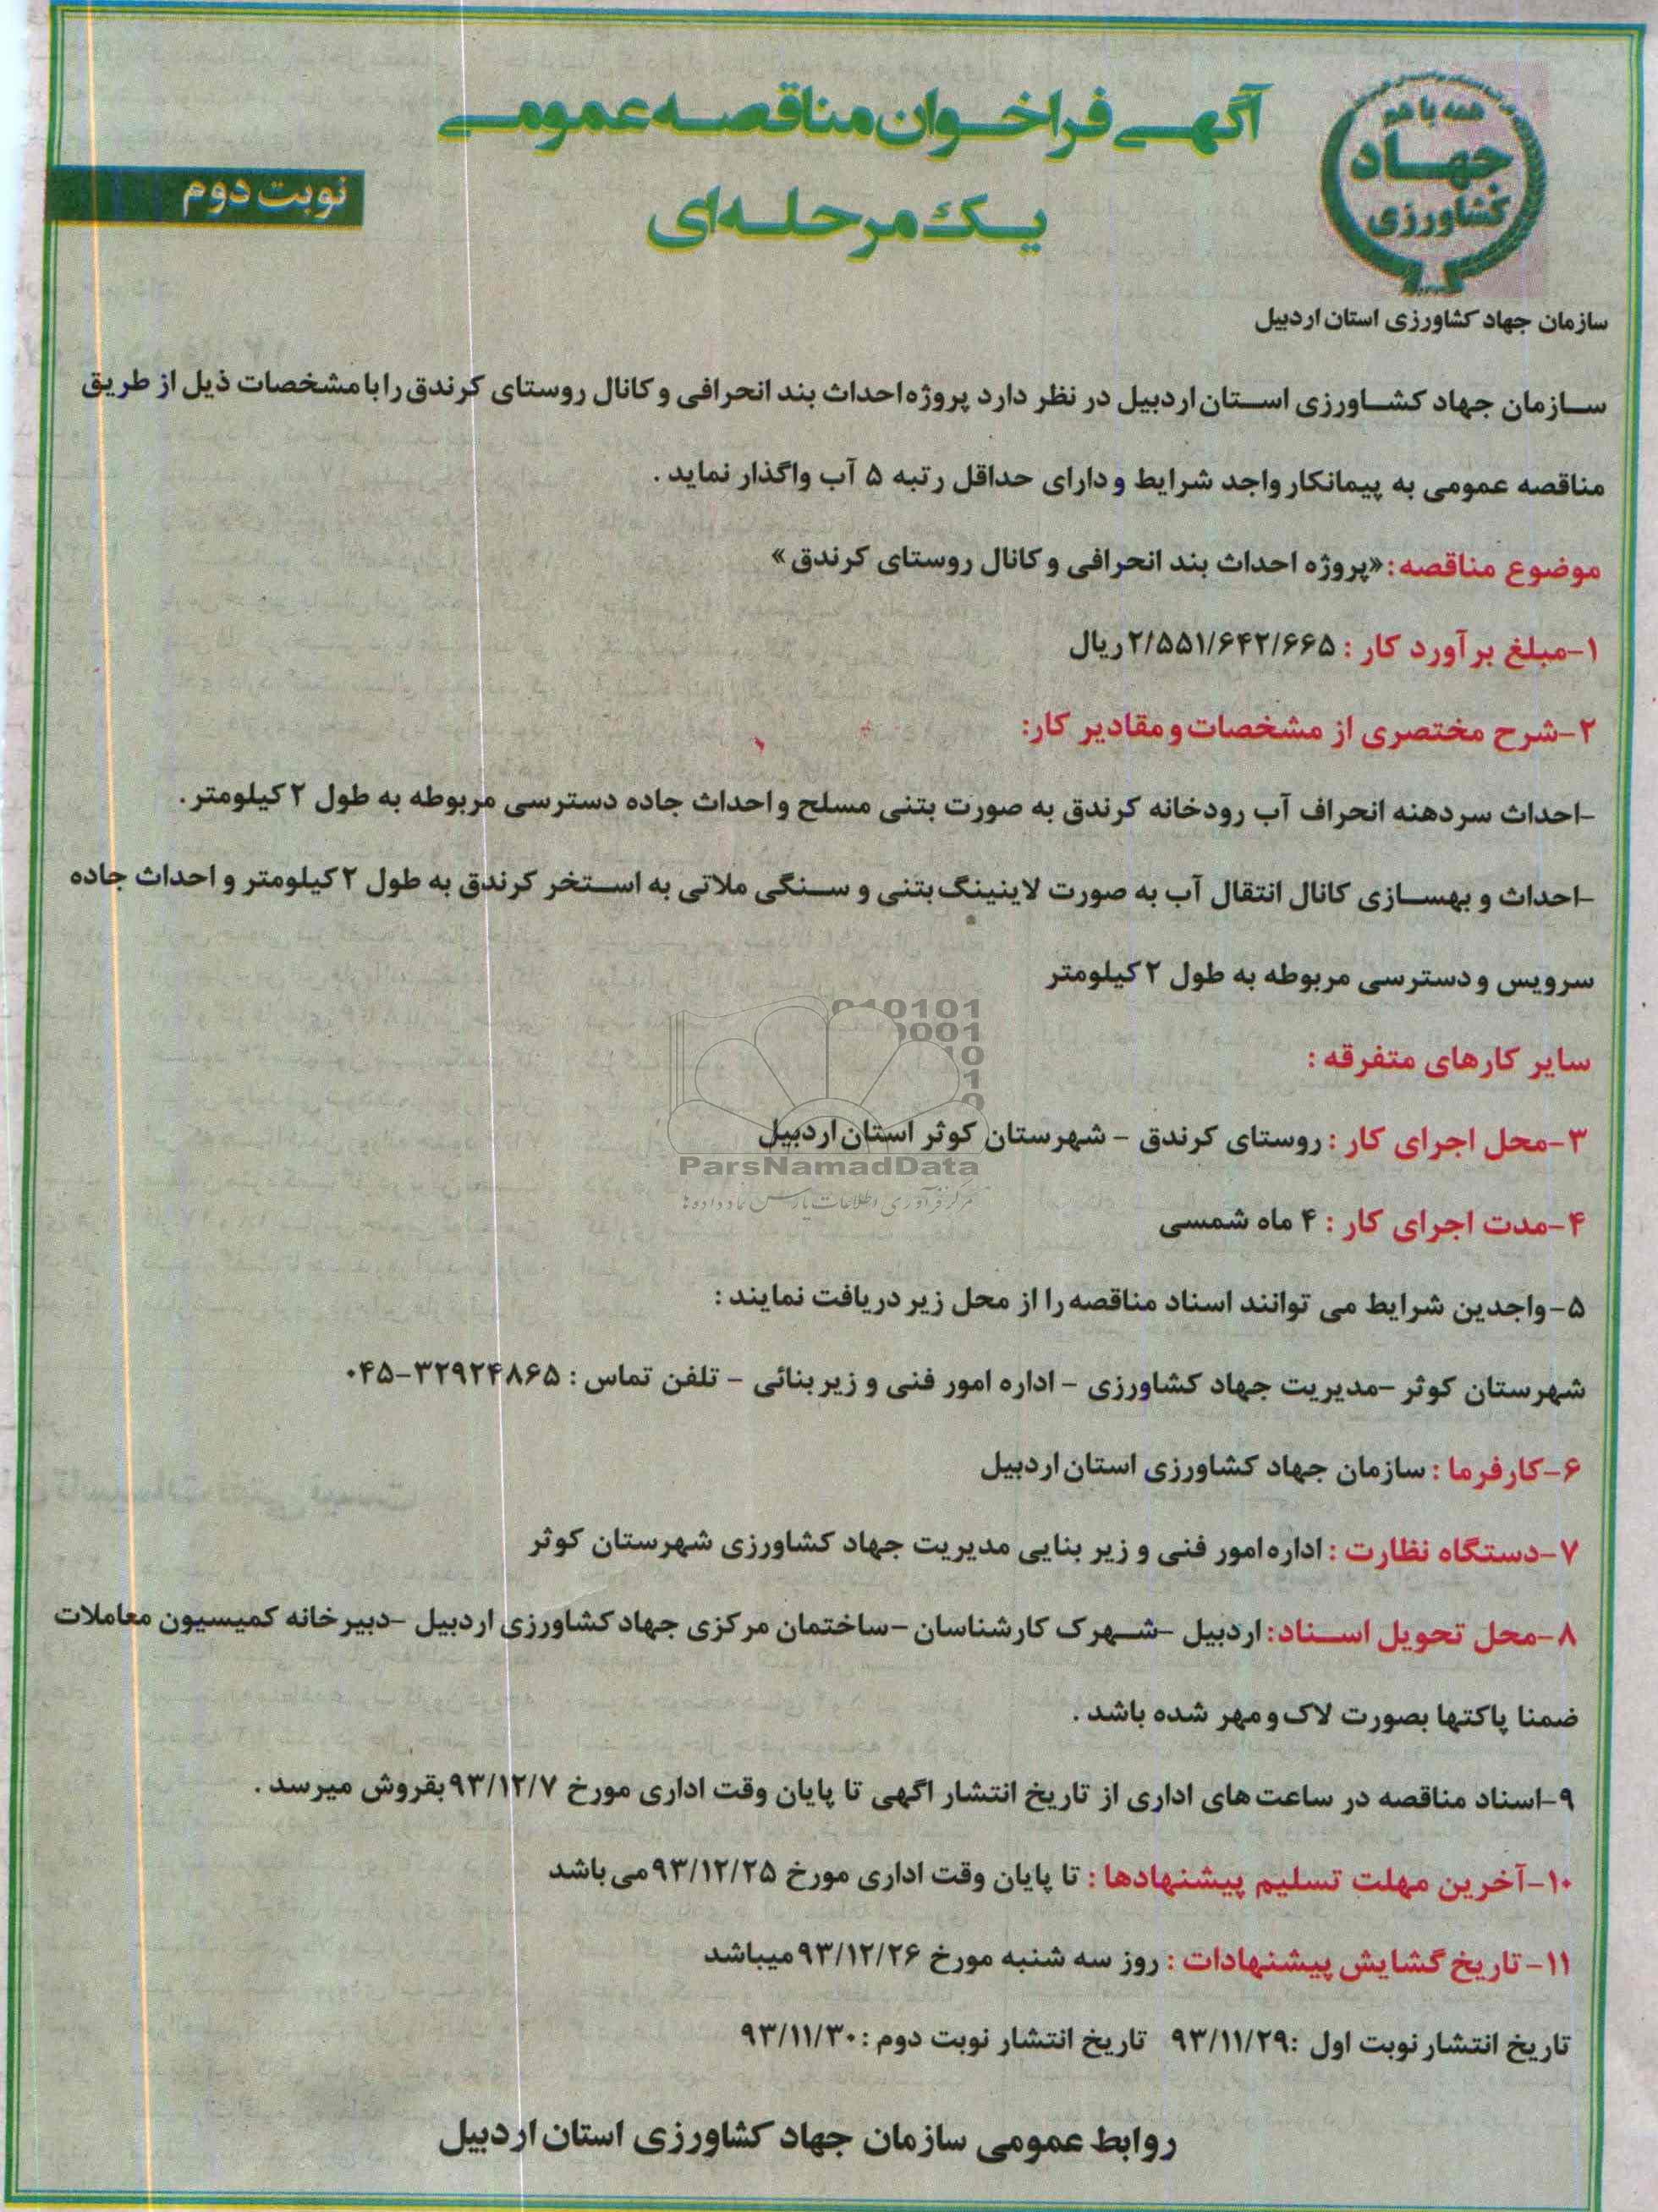 همه با هم
جهاد
کشاورزی
آگهی فراخوان مناقصه عمومی
یک مرحله‌ای
نوبت دوم
سازمان جهاد کشاورزی استان اردبیل
سازمان جهاد کشاورزی استان اردبیل در نظر دارد پروژه احداث بند انحرافی و کانال روستای کرندق را با مشخصات ذیل از طریق
مناقصه عمومی به پیمانکار واجد شرایط و دارای حداقل رتبه ۵ آب واگذار نماید .
موضوع مناقصه: «پروژه احداث بند انحرافی و کانال روستای کرندق»
۱-مبلغ برآورد کار : ۲/۵۵۱/۶۴۲/۶۶۵ ریال
۲-شرح مختصری از مشخصات و مقادیر کار:
-احداث سردهنه انحراف آب رودخانه کرندق به صورت بتنی مسلح و احداث جاده دسترسی مربوطه به طول ۲ کیلومتر .
-احداث و بهسازی کانال انتقال آب به صورت لاینینگ بتنی و سنگی ملاتی به استخر کرندق به طول ۲ کیلومتر و احداث جاده
سرویس و دسترسی مربوطه به طول ۲ کیلومتر
سایر کارهای متفرقه :
۳-محل اجرای کار : روستای کرندق - شهرستان کوثر استان اردبیل
ParsNamadData
مرکز فرآوری اطلاعات پارس نماد داده ها
۴-مدت اجرای کار : ۴ ماه شمسی
۵-واجدین شرایط می توانند اسناد مناقصه را از محل زیر دریافت نمایند :
شهرستان کوثر -مدیریت جهاد کشاورزی - اداره امور فنی و زیر بنائی - تلفن تماس : ۳۲۹۲۴۸۶۵-۰۴۵
۶-کارفرما : سازمان جهاد کشاورزی استان اردبیل
۷-دستگاه نظارت : اداره امور فنی و زیر بنایی مدیریت جهاد کشاورزی شهرستان کوثر
۸-محل تحویل اسناد: اردبیل -شهرک کارشناسان -ساختمان مرکزی جهاد کشاورزی اردبیل -دبیرخانه کمیسیون معاملات
ضمنا پاکتها بصورت لاک و مهر شده باشد .
۹-اسناد مناقصه در ساعت های اداری از تاریخ انتشار اگهی تا پایان وقت اداری مورخ ۹۳/۱۲/۷ بقروش میرسد .
۱۰-آخرین مهلت تسلیم پیشنهادها : تا پایان وقت اداری مورخ ۹۳/۱۲/۲۵ می باشد
۱۱- تاریخ گشایش پیشنهادات : روز سه شنبه مورخ ۹۳/۱۲/۲۶ میباشد
تاریخ انتشار نوبت اول :۹۳/۱۱/۲۹ تاریخ انتشار نوبت دوم :۹۳/۱۱/۳۰
روابط عمومی سازمان جهاد کشاورزی استان اردبیل